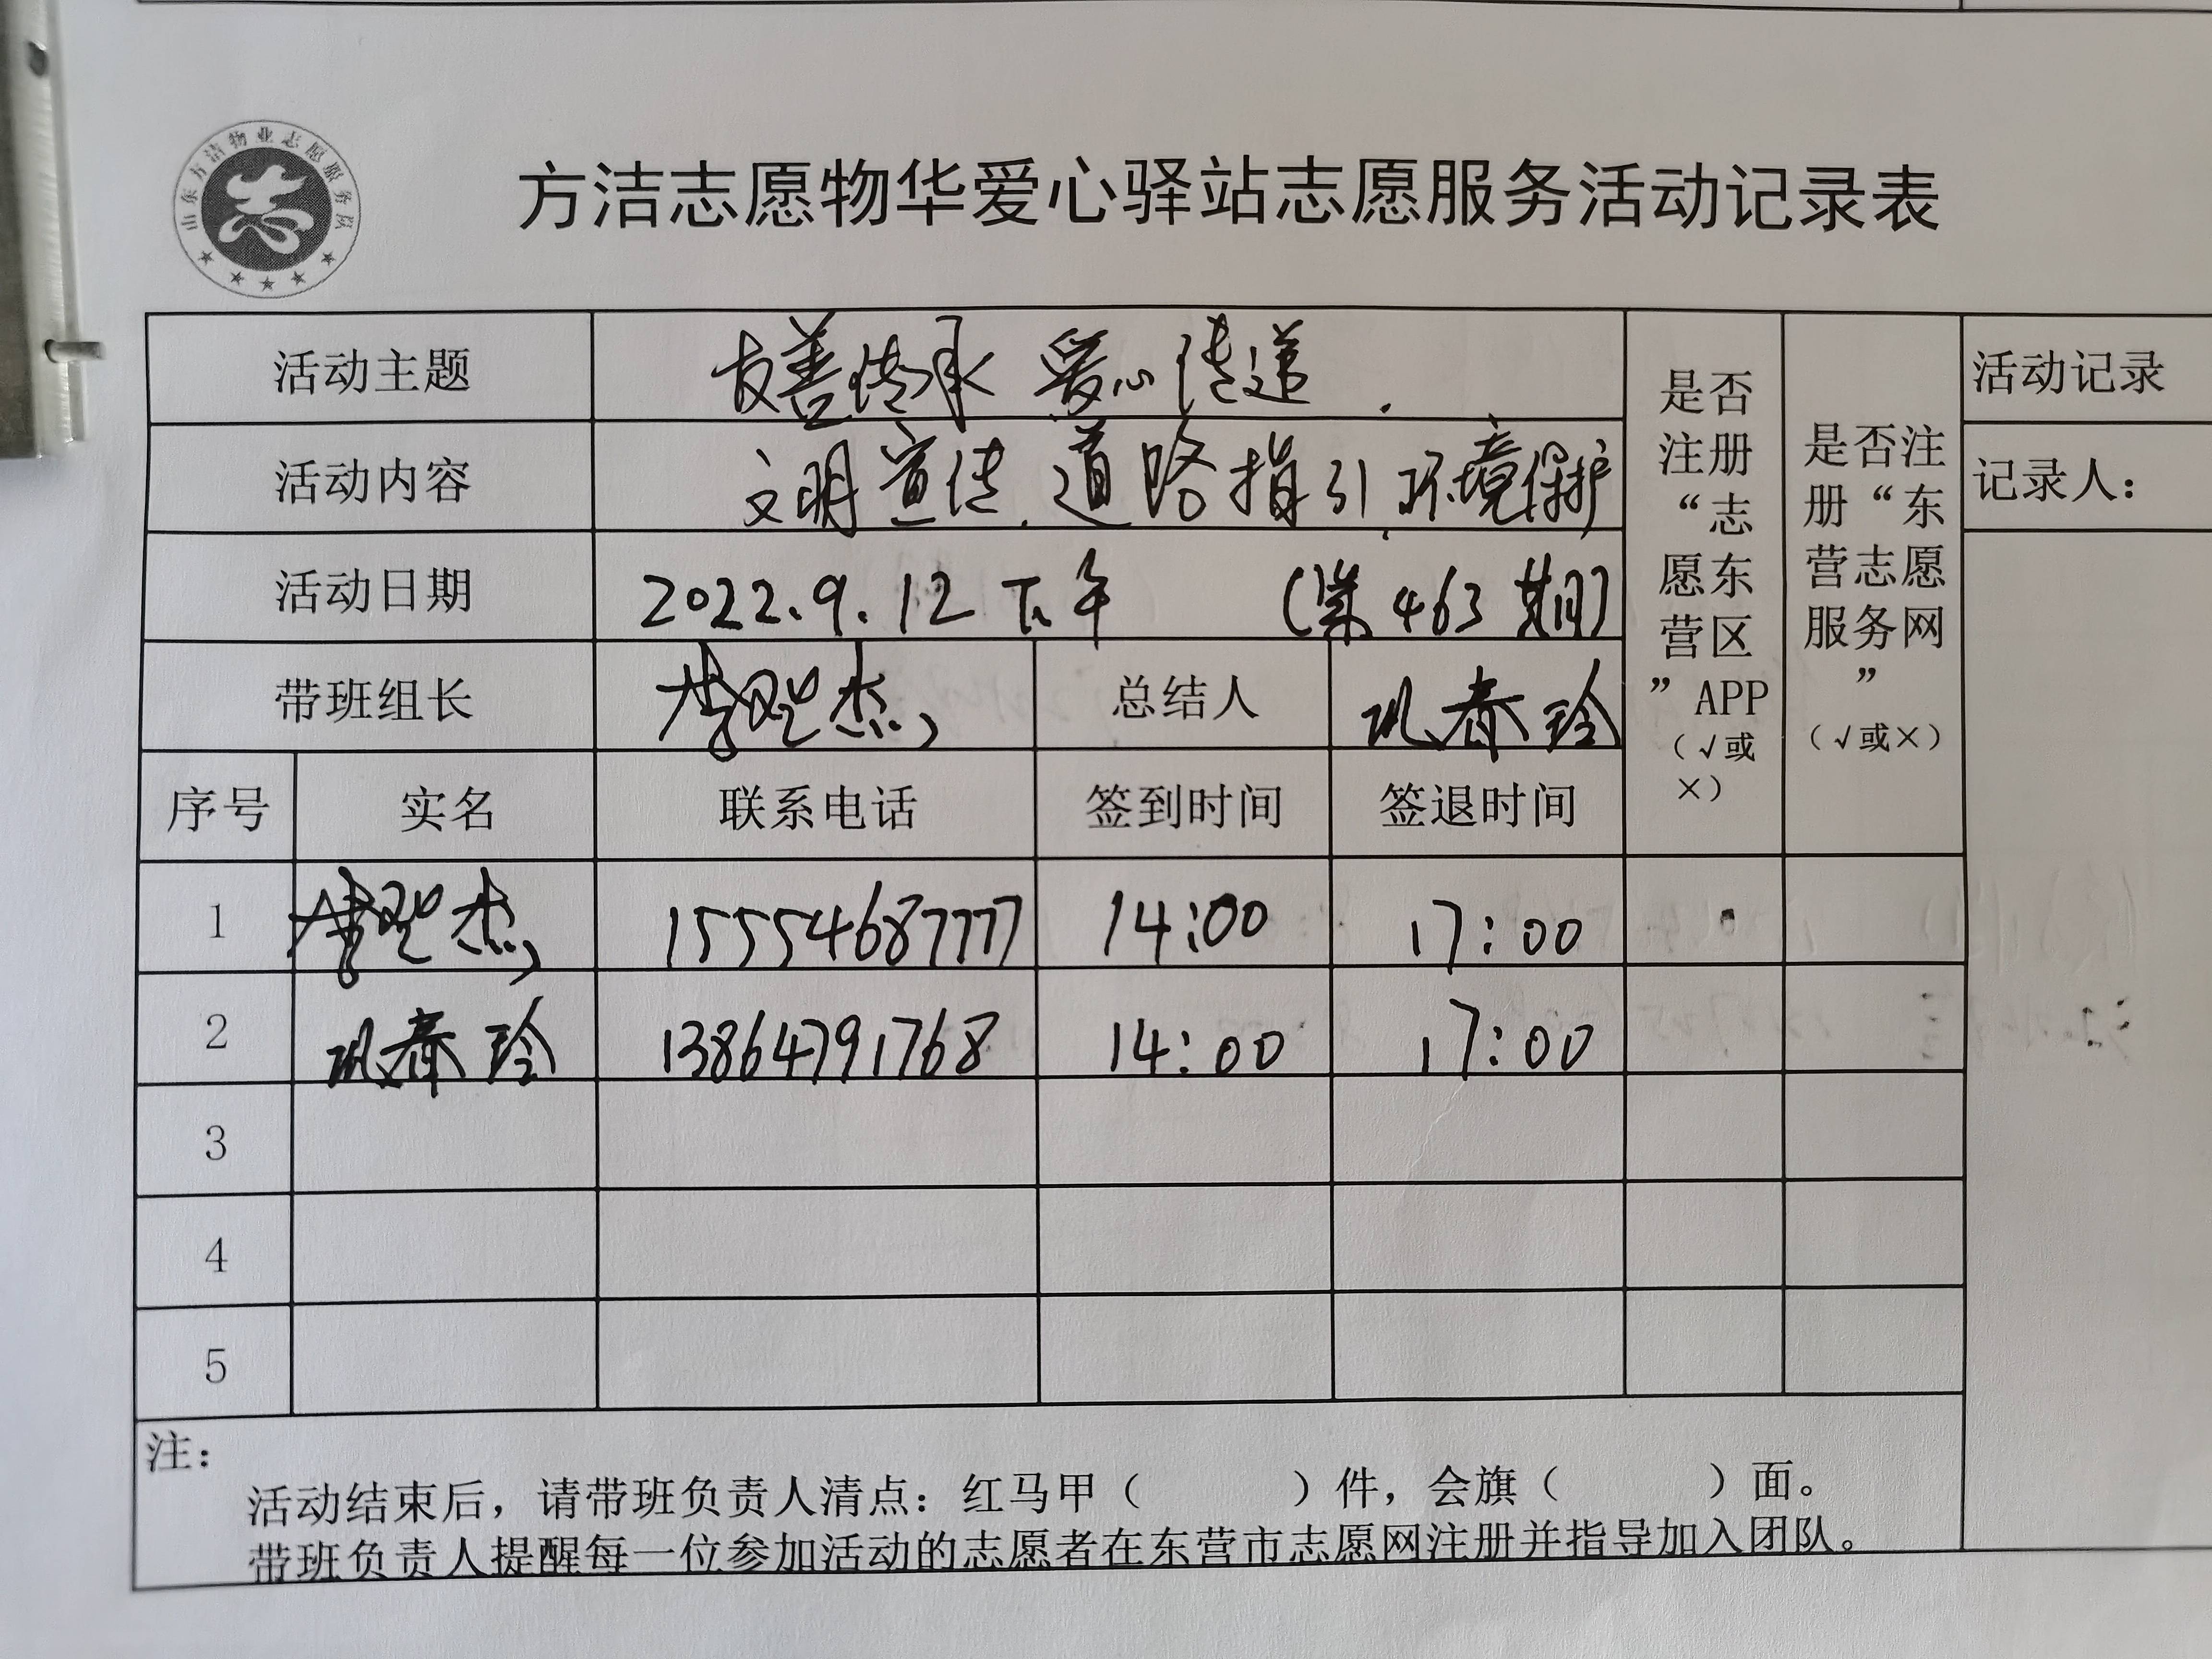 山东方洁物业志愿服务队
方洁志愿物华爱心驿站志愿服务活动记录表
活动主题 友善传承 爱心传递.
活动内容 文明宣传.道路指引.环境保护
活动日期 2022.9.12下午 (第463期)
带班组长 李观杰 总结人 巩春玲
是否注册“志愿东营区”APP(√或×)
是否注册“东营志愿服务网”(√或×)
活动记录
记录人:
序号 实名 联系电话 签到时间 签退时间
1 李观杰 15554687777 14:00 17:00
2 巩春玲 13864791768 14:00 17:00
3
4
5
注:
活动结束后,请带班负责人清点:红马甲( )件,会旗( )面。
带班负责人提醒每一位参加活动的志愿者在东营市志愿网注册并指导加入团队。